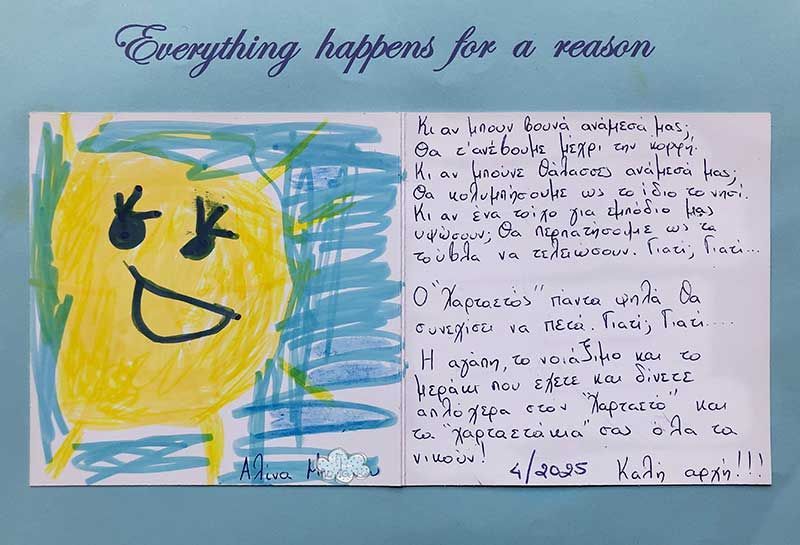 Everything happens for a reason
Κι αν μπουν βουνά ανάμεσά μας;
Θα τ'ανέβουμε μέχρι την κορφή.
Κι αν μπούνε θάλασσες ανάμεσά μας;
Θα κολυμπήσουμε ως το ίδιο το νησί.
Κι αν ένα τοίχο για εμπόδιο μας
υψώσουν; Θα περπατήσουμε ως τα
τούβλα να τελειώσουν. Γιατί; Γιατί...
Ο "Χαρταετός" πάντα ψηλά θα
συνεχίσει να πετά. Γιατί; Γιατί....
Η αγάπη, το νοιάξιμο και το
μεράκι που έχετε και δίνετε
απλόχερα στον "Χαρταετό" και
τα "χαρταετάκια" σας όλα τα
νικούν!
4/2025 Καλή αρχή!!!
Αλίνα